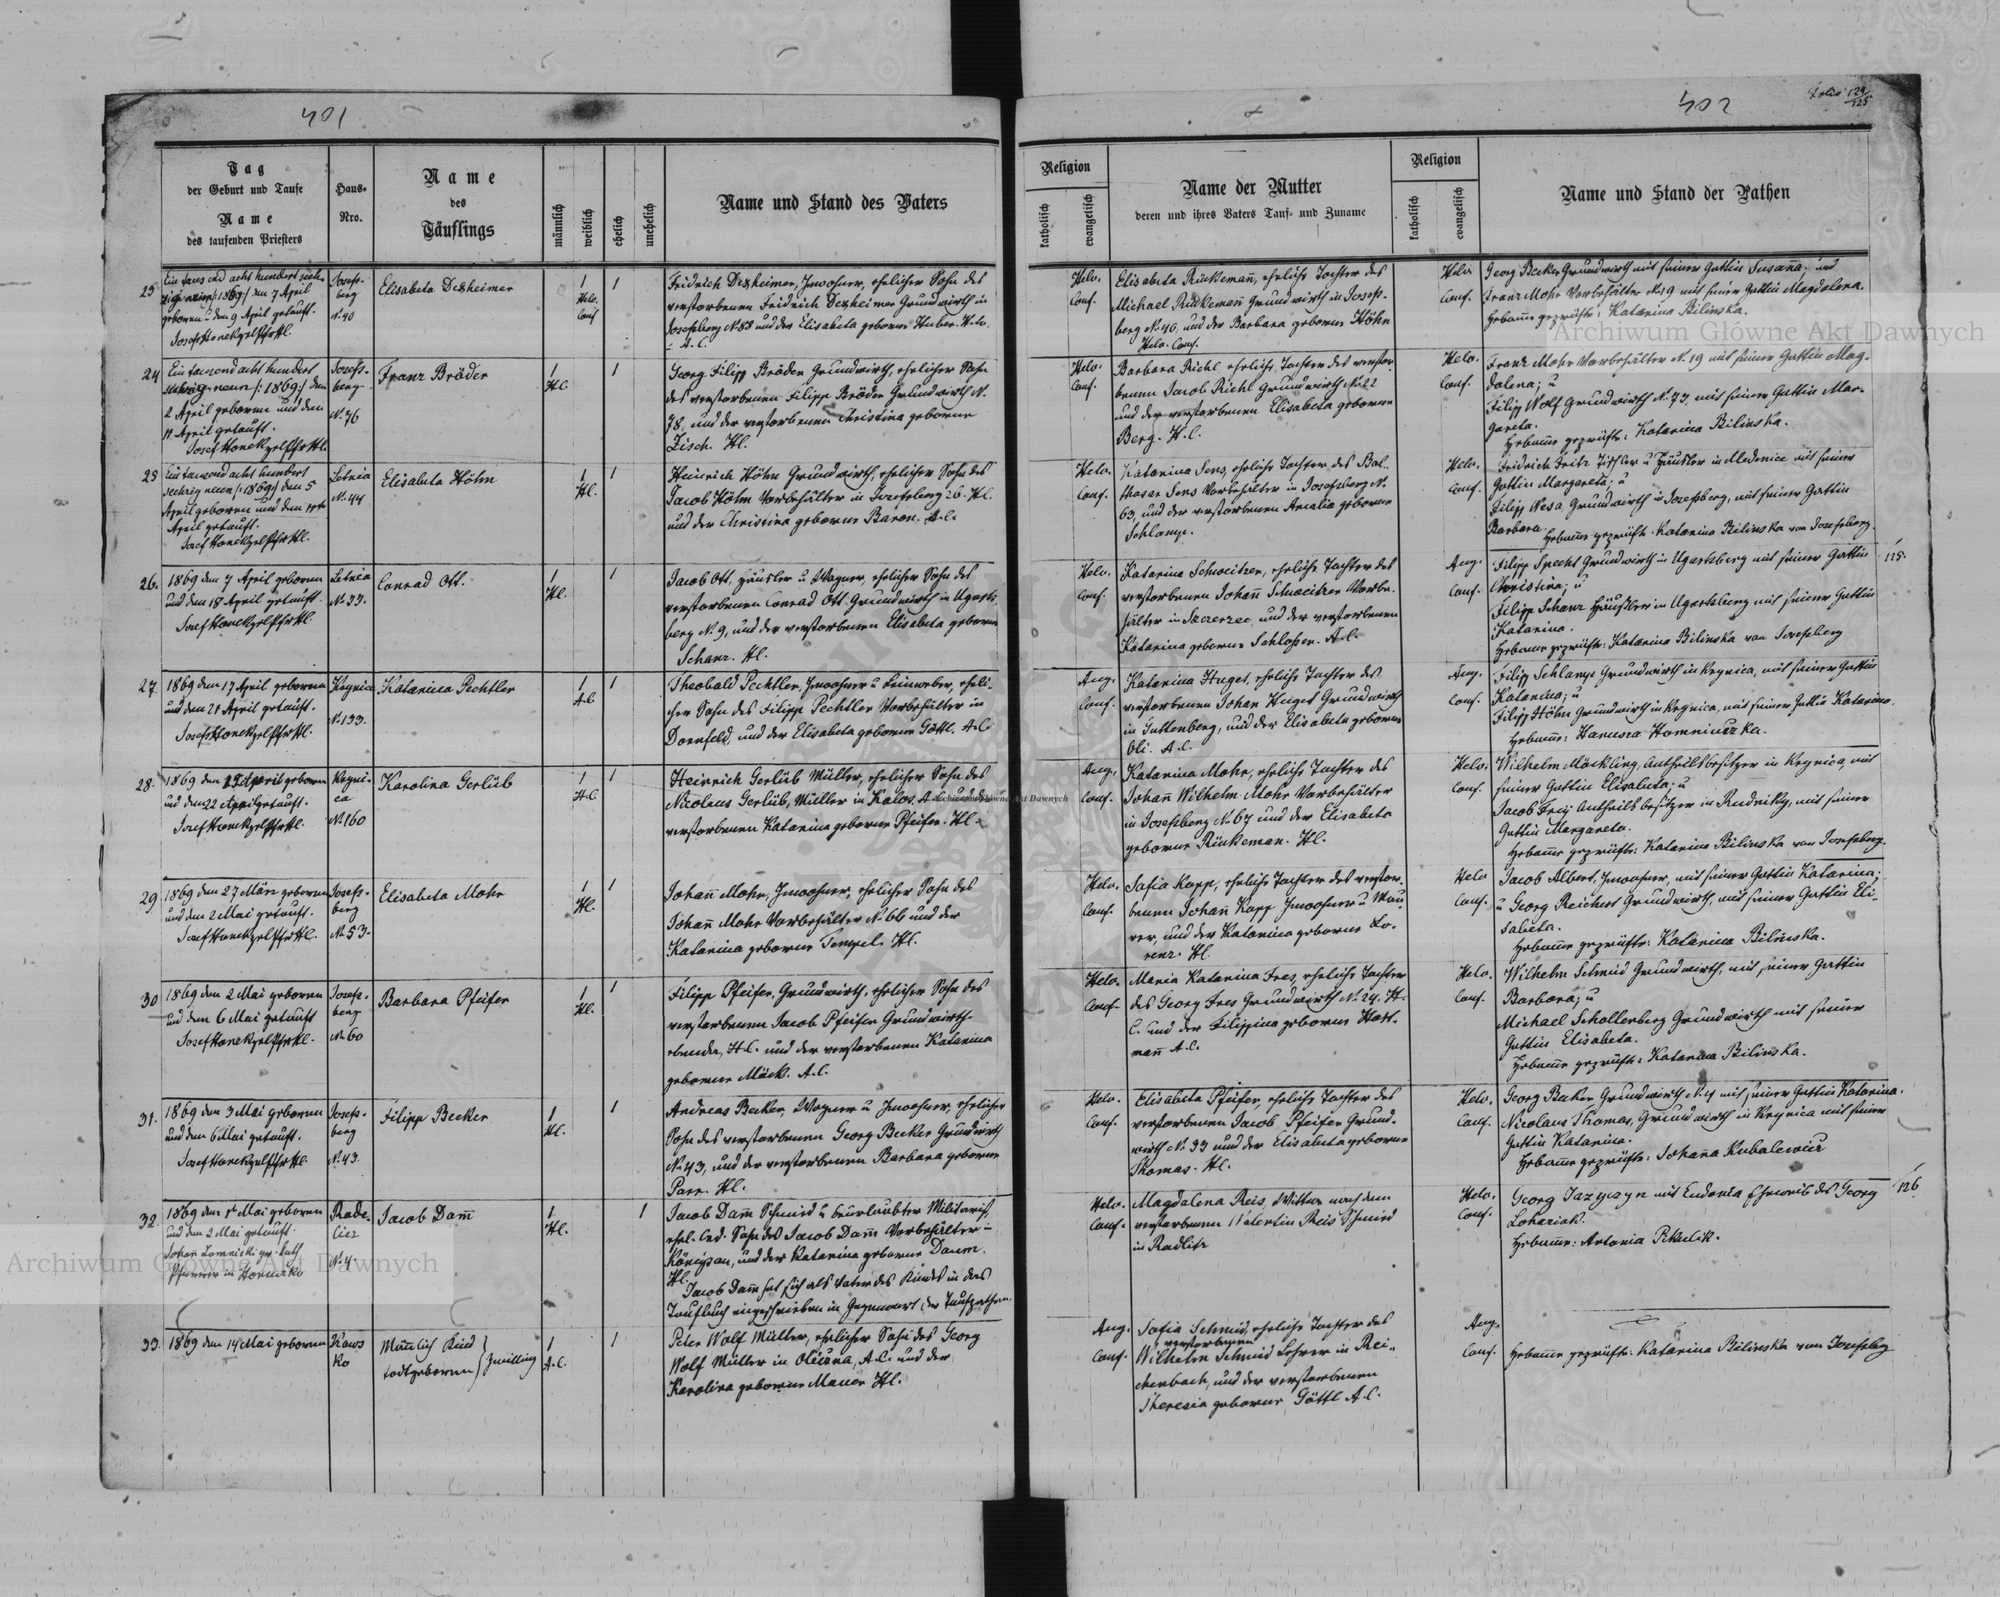 401
Tag
der Geburt und Taufe
Name
des taufenden Priesters
Haus-
Nro.
Name
des
Täuflings
männlich
weiblich
ehelich
unehelich
Name und Stand des Vaters
23
Josefs-
berg
N. 40
Elisabeta Dexheimer
1
Helv.
Conf
1
Fridrich Dexheimer, Inwohner, ehelicher Sohn des
verstorbenen Fridrich Dexheimer Grundwirth in
Josefsberg N. 88 und der Elisabeta geborne Huber
A.C.
geboren u. den 9 April getauft.
24
Ein tausend acht hundert
sechzig neun /:1869:/ den
2 April geboren und den
11 April getauft.
Josefs-
berg
N. 76
Franz Bröder
1
Hl.
1
Georg Filipp Bröder Grundwirth, ehelicher Sohn
des verstorbenen Filipp Bröder Grundwirth N.
78, und der verstorbenen Christina geborne
Zisch. Hl.
25
Ein tausend acht hundert
sechzig neun /:1869:/ den 5
April geboren und den
April getauft.
Letnia
N. 44
Elisabeta Höhn
1
Hl.
1
Heinrich Höhn Grundwirth, ehelicher Sohn des
Jacob Höhn Vorbehälter in Josefsberg 26. Hl.
und der Christina geborne Baron. A.C.
26.
1869 den 7 April geboren
und den 18 April getauft.
Letnia
N. 33.
Conrad Ott.
1
Hl.
1
Jacob Ott, Häusler u Wagner, ehelicher Sohn des
verstorbenen Conrad Ott Grundwirth in Ugarts-
berg N. 9, und der verstorbenen Elisabeta geborne
Schanz. Hl.
27.
1869 den 17 April geboren
und den 21 April getauft.
Krynica
N. 133.
Katarina Pechtler
1
A.C
1
Theobald Pechtler, Inwohner u Leinweber, eheli-
cher Sohn des Filipp Pechtler Vorbehälter in
Dornfeld, und der Elisabeta geborne Göttl. A.C
28.
1869 den April geboren
und den 22 April getauft.
Kryni-
ca
N. 160
Karolina Gerlüb
1
H.C
1
Heinrich Gerlüb Müller, ehelicher Sohn des
Nicolaus Gerlüb, Müller in Kalos. A.C. und der
verstorbenen Katarina geborne Pfeifer. Hl.
29
1869 den 27 März geboren
und den 2 Mai getauft.
Josefs-
berg
N. 53.
Elisabeta Mohr
1
Hl.
1
Johann Mohr, Inwohner, ehelicher Sohn des
Johann Mohr Vorbehälter N. 66 und der
Katarina geborne Tempel. Hl.
30
1869 den 2 Mai geboren
und den 6 Mai getauft
Josefs-
berg
N. 60
Barbara Pfeifer
1
Hl.
1
Filipp Pfeifer, Grundwirth, ehelicher Sohn des
verstorbenen Jacob Pfeifer Grundwirth
ebenda, H.C. und der verstorbenen Katarina
geborne Mück. A.C.
31.
1869 den 3 Mai geboren
und den 6 Mai getauft.
Josefs-
berg
N. 43.
Filipp Becker
1
Hl.
1
Andreas Becker, Wagner u Inwohner, ehelicher
Sohn des verstorbenen Georg Becker Grundwirth
N. 43, und der verstorbenen Barbara geborne
Parr. Hl.
32.
1869 den 1t Mai geboren
und den 2 Mai getauft
Rade-
licz
N. 4
Jacob Dam̄
1
Hl.
1
Jacob Dam̄ Schmied u beurlaubter Militarist,
ehel. Sohn des Jacob Dam̄ Vorbehälter in
Königsau, und der Katarina geborne Daum.
Hl.
Jacob Dam̄ hat sich als Vater des Kindes in das
Taufbuch eingeschrieben in Gegenwart der Taufpathen.
33.
1869 den 14 Mai geboren
Männlich Kind
todtgeboren } Zwilling
1
A.C.
1
Peter Wolf Müller, ehelicher Sohn des Georg
Wolf Müller in A.C. und der
Karolina geborne Mauer Hl.
402
Folio 124
125
Religion
katholisch
evangelisch
Name der Mutter
deren und ihres Vaters Tauf- und Zuname
Religion
katholisch
evangelisch
Name und Stand der Pathen
Helv.
Conf.
Elisabeta Rinkeman̄, eheliche Tochter des
Michael Rinkeman̄ Grundwirth in Josefs-
berg N. 46, und der Barbara geborne Höhn
Helv. Conf.
Helv.
Conf.
Georg Becker Grundwirth mit seiner Gattin Susan̄a; und
Franz Mohr Vorbehälter N. 19 mit seiner Gattin Magdalena.
Hebam̄e geprüfte: Katarina Bilinska.
Helv.
Conf.
Barbara Richl eheliche Tochter des verstor-
benen Jacob Richl Grundwirth N. 22
und der verstorbenen Elisabeta geborne
Berg. H.C.
Helv.
Conf.
Franz Mohr Vorbehälter N. 19 mit seiner Gattin Mag-
dalena; u
Filipp Wolf Grundwirth N. 73, mit seiner Gattin Mar-
gareta.
Hebam̄e geprüfte: Katarina Bilinska.
Helv.
Conf.
Katarina Sens, eheliche Tochter des Bal-
thasar Sens Vorbehälter in Josefsberg N.
63, und der verstorbenen Amalia geborne
Schlamp.
Helv.
Conf.
Fridrich Fritz Tischler u Häusler in Medenice mit seiner
Gattin Margareta; u
Filipp Wesa, Grundwirth in Josefsberg, mit seiner Gattin
Barbara.
Hebam̄e geprüfte: Katarina Bilinska von Josefsberg.
Helv.
Conf.
Katarina Schweitzer, eheliche Tochter des
verstorbenen Johan̄ Schweitzer Vorbe-
hälter in Szczerzec, und der verstorbenen
Katarina geborne Schlosser. A.C.
Aug.
Conf.
Filipp Specht Grundwirth in Ugartsberg mit seiner Gattin
Christina; u
Filipp Schanz Häusler in Ugartsberg mit seiner Gattin
Katarina.
Hebam̄e geprüfte: Katarina Bilinska von Josefsberg
125.
Aug.
Conf.
Katarina Huget, eheliche Tochter des
verstorbenen Johan Huget Grundwirth
in Guttenberg, und der Elisabeta geborne
Oli. A.C.
Aug.
Conf.
Filipp Schlamp Grundwirth in Krynica, mit seiner Gattin
Katarina; u
Filipp Höhn Grundwirth in Krynica, mit seiner Gattin Katarina.
Hebam̄e: Hanusza Homniuszka.
Aug.
Conf.
Katarina Mohr, eheliche Tochter des
Johan̄ Wilhelm Mohr Vorbehälter
in Josefsberg N. 67 und der Elisabeta
geborne Rinkeman. Hl.
Helv.
Conf.
Wilhelm Möckling Antheilsbesitzer in Krynica, mit
seiner Gattin Elisabeta; u
Jacob Frej Antheilsbesitzer in Rudniky, mit seiner
Gattin Margareta.
Hebam̄e geprüfte: Katarina Bilinska von Josefsberg.
Helv.
Conf.
Sofia Kapp, eheliche Tochter des verstor-
benen Johan̄ Kapp Inwohner u Mau-
rer, und der Katarina geborne Lo-
renz. Hl
Helv
Conf.
Jacob Albert, Inwohner, mit seiner Gattin Katarina;
u Georg Reichert Grundwirth, mit seiner Gattin Eli-
sabeta.
Hebam̄e geprüfte: Katarina Bilinska.
Helv.
Conf.
Maria Katarina Fres, eheliche Tochter
des Georg Fres Grundwirth N. 24. H.
C. und der Filippina geborne Hart-
man̄ A.C.
Helv.
Conf.
Wilhelm Schmid Grundwirth, mit seiner Gattin
Barbara; u
Michael Schollenberg Grundwirth mit seiner
Gattin Elisabeta.
Hebam̄e geprüfte: Katarina Bilinska.
Helv.
Conf.
Elisabeta Pfeifer, eheliche Tochter des
verstorbenen Jacob Pfeifer Grund-
wirth N. 33 und der Elisabeta geborne
Thomas. Hl.
Helv.
Conf.
Georg Becker Grundwirth N. 4 mit seiner Gattin Katarina.
Nicolaus Thomas, Grundwirth in Krynica mit seiner
Gattin Katarina.
Hebam̄e geprüfte: Johan̄a Kubalewicz
Helv.
Conf.
Magdalena Reis, Wittwe nach dem
verstorbenen Valentin Reis Schmied
in Radlitz
Helv.
Conf.
Georg mit Eudoxia Eheweib des Georg
Hebam̄e: Antonia
126
Aug.
Conf.
Sofia Schmid, eheliche Tochter des
verstorbenen
Wilhelm Schmid Lehrer in Rei-
chenbach, und der verstorbenen
Theresia geborne Göttl A.C.
Aug.
Conf.
Hebam̄e geprüfte: Katarina Bilinska von Josefsberg
Archiwum Główne Akt Dawnych
Archiwum Główne Akt Dawnych
Archiwum Główne Akt Dawnych